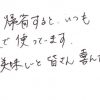 帰省すると、いつも
で使っています.
美味しいと皆さん喜んで